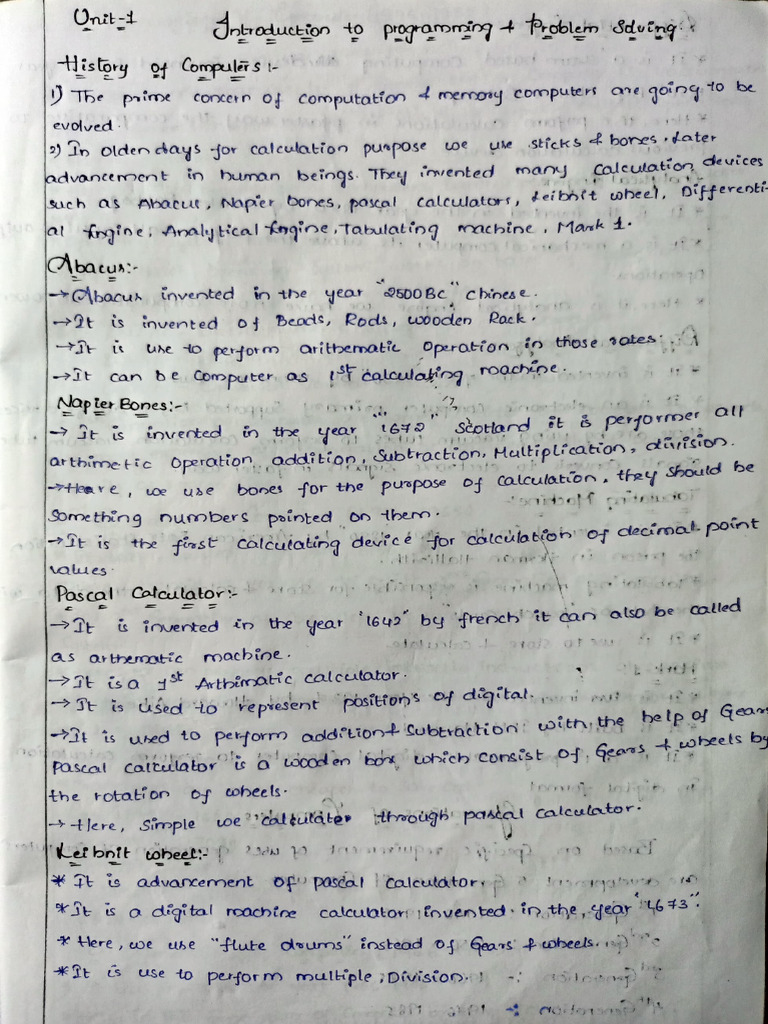 Unit-1 Introduction to programming & Problem Solving.
History of Computers :-
1) The prime concern of computation & memory computers are going to be
evolved.
2) In olden days for calculation purpose we use sticks & bones. Later
advancement in human beings. They invented many calculation devices
such as Abacus, Napier bones, pascal calculators, Leibnit wheel, Differenti-
al Engine, Analytical Engine, Tabulating machine, Mark 1.
Abacus:-
→ Abacus invented in the year "2500BC" chinese.
→ It is invented of Beads, Rods, wooden Rack.
→ It is use to perform arithematic operation in those rates.
→ It can be computer as 1st calculating machine.
Napier Bones:-
→ It is invented in the year "1672" Scotland it is performer all
arthimetic operation addition, Subtraction, Multiplication, division.
→ Heare, we use bones for the purpose of calculation, they should be
Something numbers printed on them.
→ It is the first calculating device for calculation of decimal point
values.
Pascal Calculator:-
→ It is invented in the year "1642" by french it can also be called
as arthematic machine.
→ It is a 1st Arthimatic calculator.
→ It is used to represent positions of digital.
→ It is used to perform addition & Subtraction with the help of Gears
pascal calculator is a wooden box which consist of Gears & wheels by
the rotation of wheels.
→ Here, Simple we calculate through pascal calculator.
Leibnit wheel:-
* It is advancement of pascal calculator.
* It is a digital machine calculator invented in the year "1673".
* Here, we use "flute drums" instead of Gears & wheels.
* It is use to perform multiple, Division.